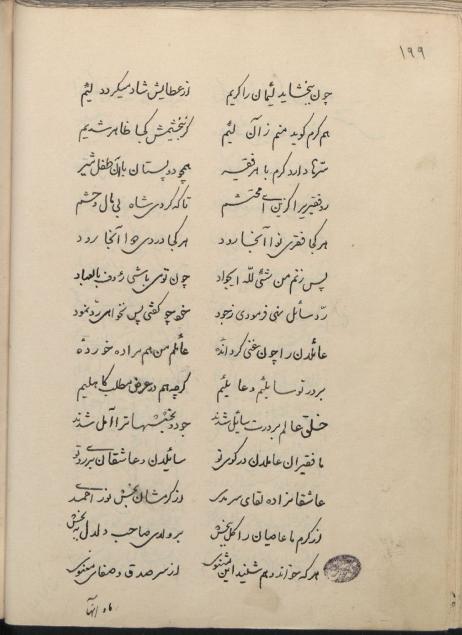 ١٩٩
چون ببخشاید لئیمان را کریم از عطایش شاد میگردد لئیم
هم کرم گوید منم زان لئیم گر نبخشیمش کجا ظاهر شدیم
سرها دارد کرم با هر فقیر همچو دو پستان با آن طفل شیر
رد فقیر را مکن ای محتشم تا که گردی شاه بی مال و حشم
هر کجا فقری نوا آنجا رود هر کجا دردی دوا آنجا رود
پس زنم من شیء لله ای جواد چون توی باشی رؤف بالعباد
رد سائل نهی فرمودی ز جود خود چو گفتی پس نخواهی رد نمود
عائلان را چون غنی کرده عائلم من هم مراده خورده
بر در تو سایلیم و عایلیم گرچه هم در عرض مطلب کاهلیم
خلق عالم بر درت سائل شدند جود و بخششها ترا آمل شدند
ما فقیران عاملان در کوی تو سائلان و عاشقان بر رد تو
عاشقانرا ده لقای سرمدی از کرمشان بخش نور احمدی
از کرم ما عاصیان را کل ببخش بر ولای صاحب دلدل ببخش
هر که خواند و هم شنید این مثنوی از سر صدق و صفای معنوی